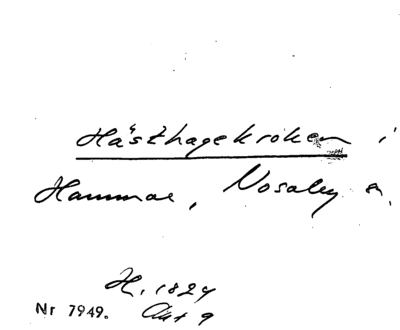 Hästhagekroken i
Hammar, Nosaby sn.
H. 1824
Nr 7949. Akt 9